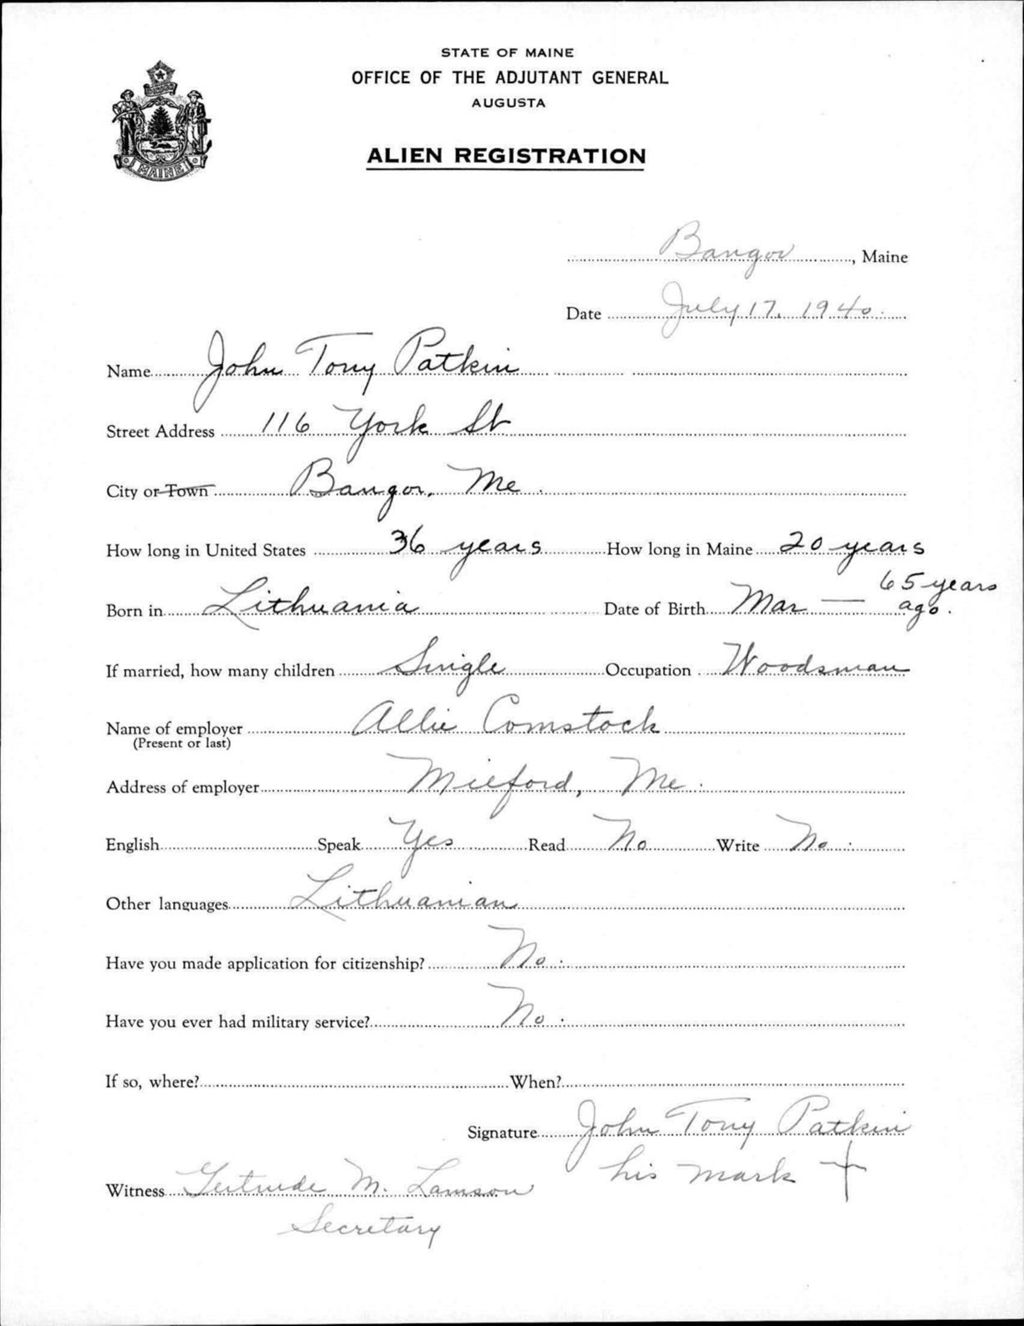 STATE OF MAINE
OFFICE OF THE ADJUTANT GENERAL
AUGUSTA
ALIEN REGISTRATION
MAINE
Bangor, Maine
Date July 17, 1940.
Name John Tony Patkin
Street Address 116 York St
City or Town Bangor, Me.
How long in United States 36 years How long in Maine 20 years
Born in Lithuania Date of Birth Mar — 65 years ago.
If married, how many children Single Occupation Woodsman
Name of employer Allie Comstock
(Present or last)
Address of employer Milford, Me.
English Speak Yes Read No Write No.
Other languages Lithuanian
Have you made application for citizenship? No.
Have you ever had military service? No.
If so, where? When?
Signature John Tony Patkin
his mark +
Witness Gertrude M. Lamson
Secretary